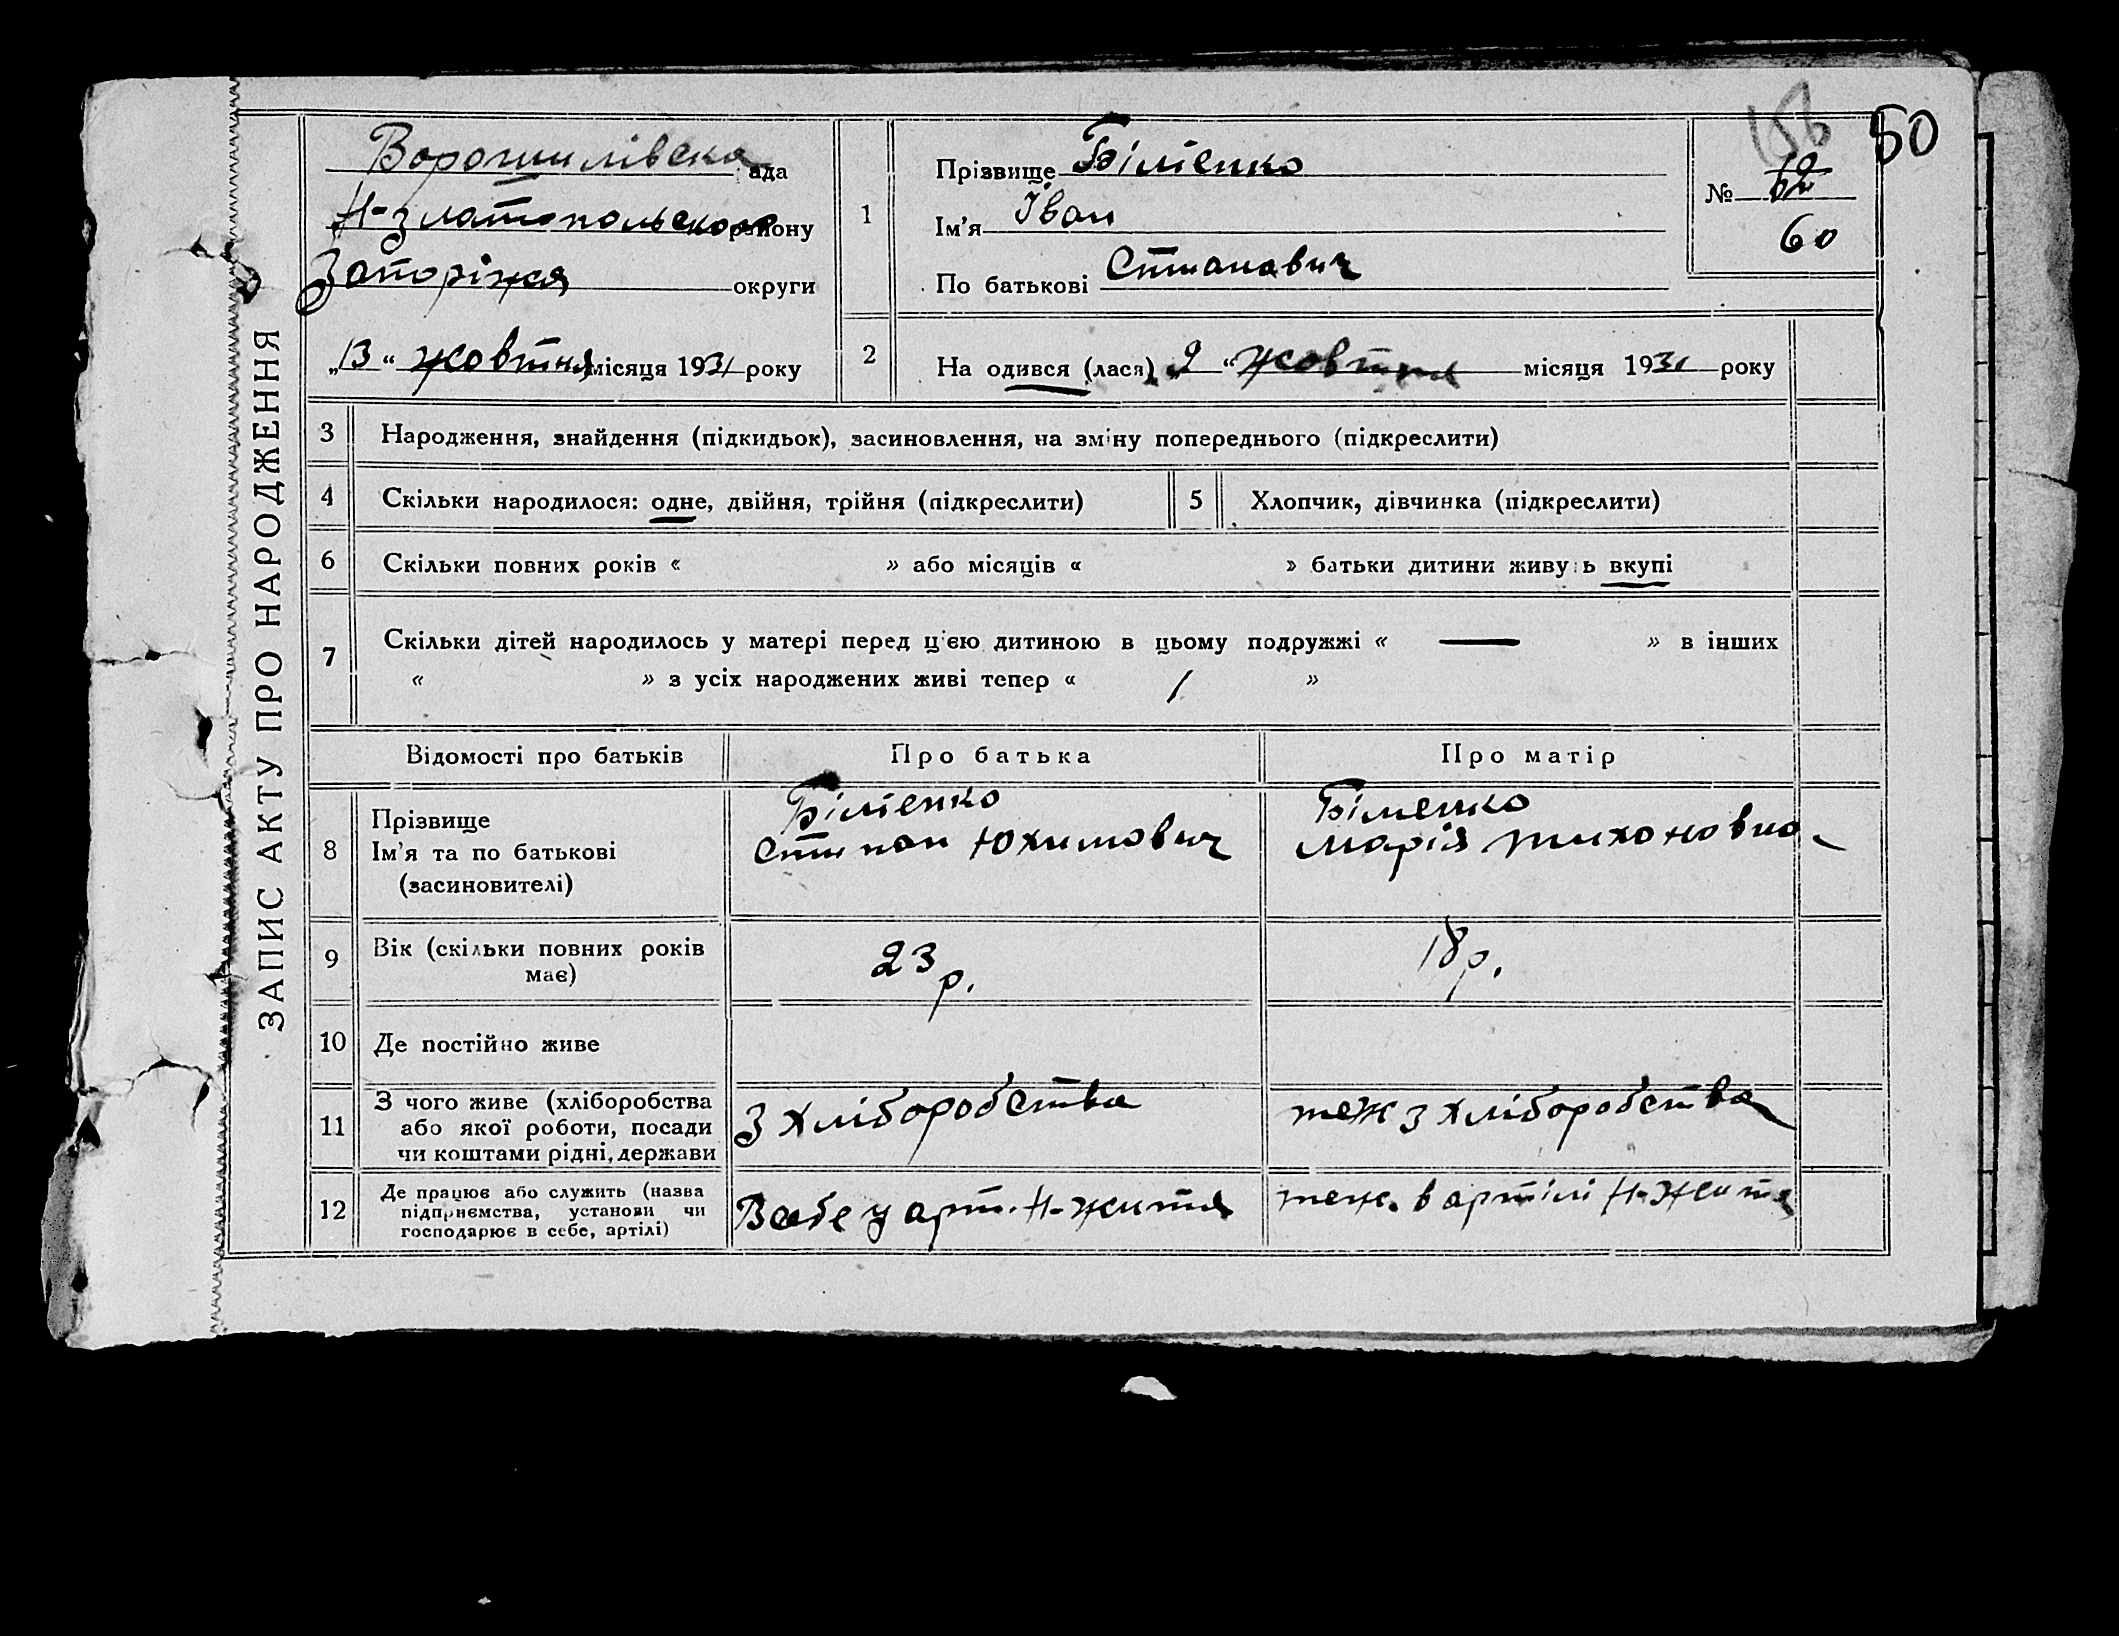 50
ЗАПИС АКТУ ПРО НАРОДЖЕННЯ
Ворошилівска ада
Н-златопольского району
Запоріжя округи
„13“ жовтня місяця 1931 року
1
Прізвище Біленко
Ім'я Іван
По батькові Стипанович
№
60
2
На одився (лася) „2“ жовтня місяця 1931 року
3 Народження, знайдення (підкидьок), засиновлення, на зміну попереднього (підкреслити)
4 Скільки народилося: одне, двійня, трійня (підкреслити) 5 Хлопчик, дівчинка (підкреслити)
6 Скільки повних років « » або місяців « » батьки дитини живу ь вкупі
7 Скільки дітей народилось у матері перед ц'єю дитиною в цьому подружжі « — » в інших
« » з усіх народжених живі тепер « 1 »
Відомості про батьків Про батька Про матір
8 Прізвище
Ім'я та по батькові
(засиновителі)
Біленко
Стипан Юхимович
Біленко
Марія Тихоновна
9 Вік (скільки повних років
має)
23 р.
18 р.
10 Де постійно живе
11 З чого живе (хліборобства
або якої роботи, посади
чи коштами рідні, держави
З хліборобства
теж з хліборобства
12 Де працює або служить (назва
підприємства, установи чи
господарює в себе, артілі)
В себе у арт. Н-життя
теж. в артілі Н-Життя